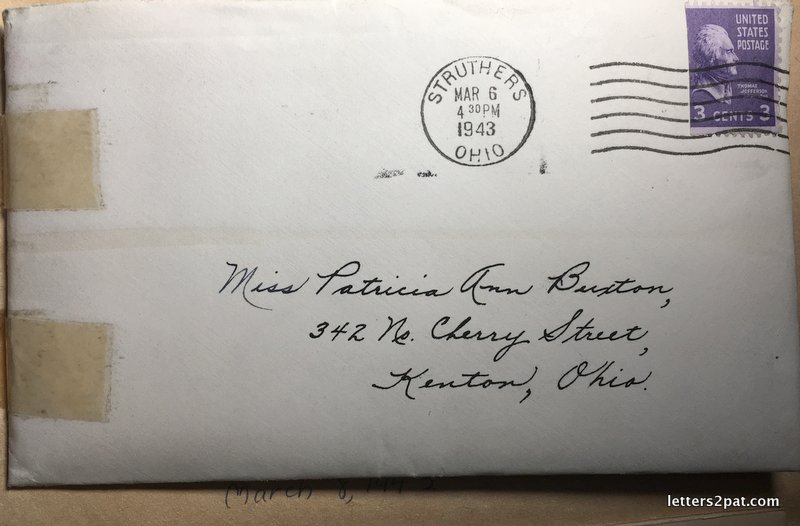 UNITED
STATES
POSTAGE
THOMAS
JEFFERSON
3 CENTS 3
STRUTHERS
MAR 6
4 30 PM
1943
OHIO
Miss Patricia Ann Buxton,
342 No. Cherry Street,
Kenton, Ohio.
March 8,
letters2pat.com